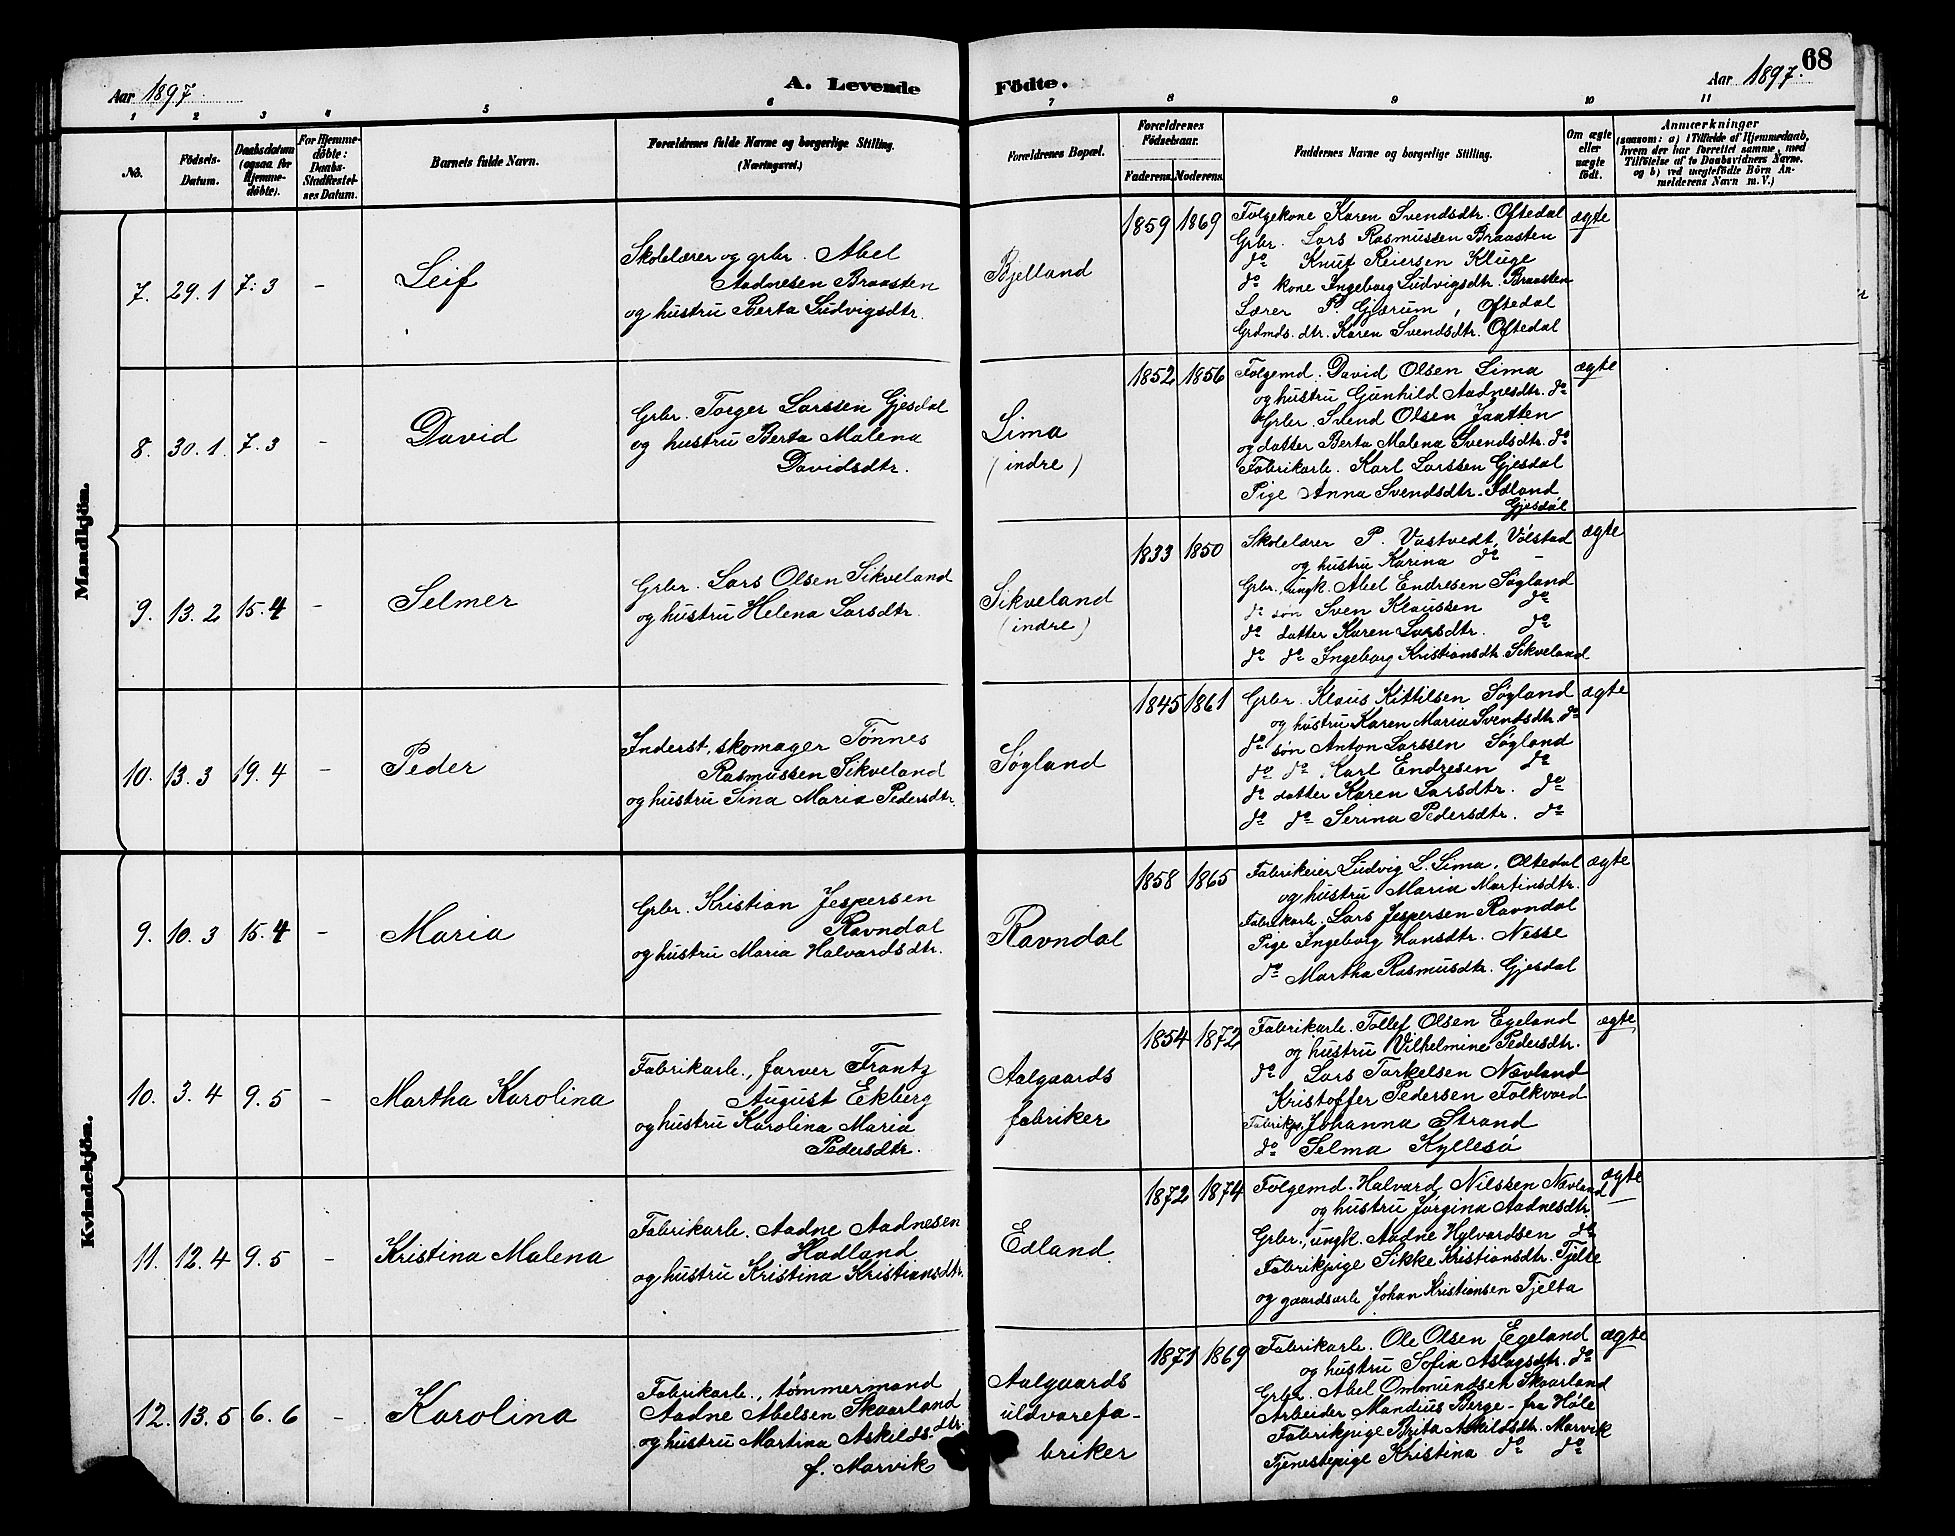 68
Aar 1897
A. Levende Födte.
Aar 1897.
1 2 3 4 5 6 7 8 9 10 11
No.
Födsels-Datum.
Daabsdatum (ogsaa for Hjemmedöbte).
For Hjemmedöbte: Daabs-Stadfæstelses Datum.
Barnets fulde Navn.
Forældrenes fulde Navne og borgerlige Stilling. (Næringsvei.)
Forældrenes Bopæl.
Forældrenes Födselsaar.
Faderens. Moderens.
Faddernes Navne og borgerlige Stilling.
Om ægte eller uægte födt.
Anmærkninger
(saasom: a) i Tilfælde af Hjemmedaab,
hvem der har forrettet samme, med
Tilföielse af to Daabsvidners Navne.
og b) ved uægtefödte Börn An-
melderens Navn m. V.)
Mandkjön.
7. 29.1 7.3 – Leif
Skolelærer og grbr. Abel
Aadnesen Braasten
og hustru Berta Ludvigsdtr.
Bjelland
1859 1869
Følgekone Karen Svendsdtr. Oftedal
Grbr. Lars Rasmussen Braasten
do Knut Reiersen Kluge
do kone Ingeborg Ludvigsdtr. Braasten
Lærer P. Gjærum, Oftedal
Grdmds. dtr. Karen Svendsdtr. Oftedal
ægte
8. 30.1. 7.3 – David
Grbr. Torger Larssen Gjesdal
og hustru Berta Malena
Davidsdtr.
Lima
(indre)
1852 1856
Følgemd. David Olsen Lima
og hustru Gunhild Aadnesdtr. do
Grbr. Svend Olsen Jaatten
og datter Berta Malena Svendsdtr. do
Fabrikarb. Karl Larssen Gjesdal
Pige Anna Svendsdtr. Edland
Gjesdal
ægte
9. 13.2 15.4 – Selmer
Grbr. Lars Olsen Sikveland
og hustru Helena Larsdtr.
Sikveland
(indre)
1833 1850
Skolelærer P. Vastvedt, Vølstad
og hustru Karina do –
Grbr., ungk. Abel Endresen Søgland
do søn Sven Klaussen do
do datter Karen Larsdtr. do
do do Ingeborg Kristiansdtr. Sikveland
ægte
10. 13.3 19.4 – Peder
Inderst, skomager Tønnes
Rasmussen Sikveland
og hustru Sina Maria Pedersdtr.
Søgland
1845 1861
Grbr. Klaus Kittilsen Søgland
og hustru Karen Maria Svendsdtr. do
do søn Anton Larssen Søgland
do do Karl Endresen do
do datter Karen Larsdtr. do
do do Serina Pedersdtr. do
ægte
Kvindekjön.
9. 10.3 15.4 – Maria
Grbr. Kristian Jespersen
Ravndal
og hustru Maria Halvardsdtr.
Ravndal
1858 1865
Fabrikeier Ludvig L. Lima, Oltedal
og hustru Maria Martinsdtr.
Fabrikarb. Lars Jespersen Ravndal
Pige Ingeborg Hansdtr. Nesse
do Martha Rasmusdtr. Gjesdal
ægte
10. 3.4 9.5 – Martha Karolina
Fabrikarb., farver Frantz
August Ekberg
og hustru Karolina Maria
Pedersdtr.
Aalgaards
fabriker
1854 1872
Fabrikarb. Tollef Olsen Egeland
og hustru Vilhelmine Pedersdtr.
do Lars Torkelsen Nævland
Kristoffer Pedersen Folkvord
Fabrikp. Johanna Strand
do Selma Kyllesø
ægte
11. 12.4 9.5 – Kristina Malena
Fabrikarb. Aadne Aadnesen
Hadland
og hustru Kristina Kristiansdtr.
Edland
1872 1874
Følgemd. Halvard Nilssen Nævland
og hustru Jørgina Aadnesdtr.
Grbr., ungk. Aadne Halvardsen do
Fabrikpige Sikke Kristiansdtr. Tjelte
og gaardsarb Johan Kristiansen Tjelta
ægte
12. 13.5 6.6 – Karolina
Fabrikarb., tømmermand
Aadne Abelsen Skaarland
og hustru Martina Askilds dtr.
f. Marvik
Aalgaards
uldvarefa-
briker
1871 1869
Fabrikarb. Ole Olsen Egeland
og hustru Sofia Aslagsdtr. do
Grbr. Abel Ommundsen Skaarland
Arbeider Mandius Berge – fra Høle
Fabrikpige Brita Askildsdtr. Marvik
Tjenestepige Kristina do do
ægte